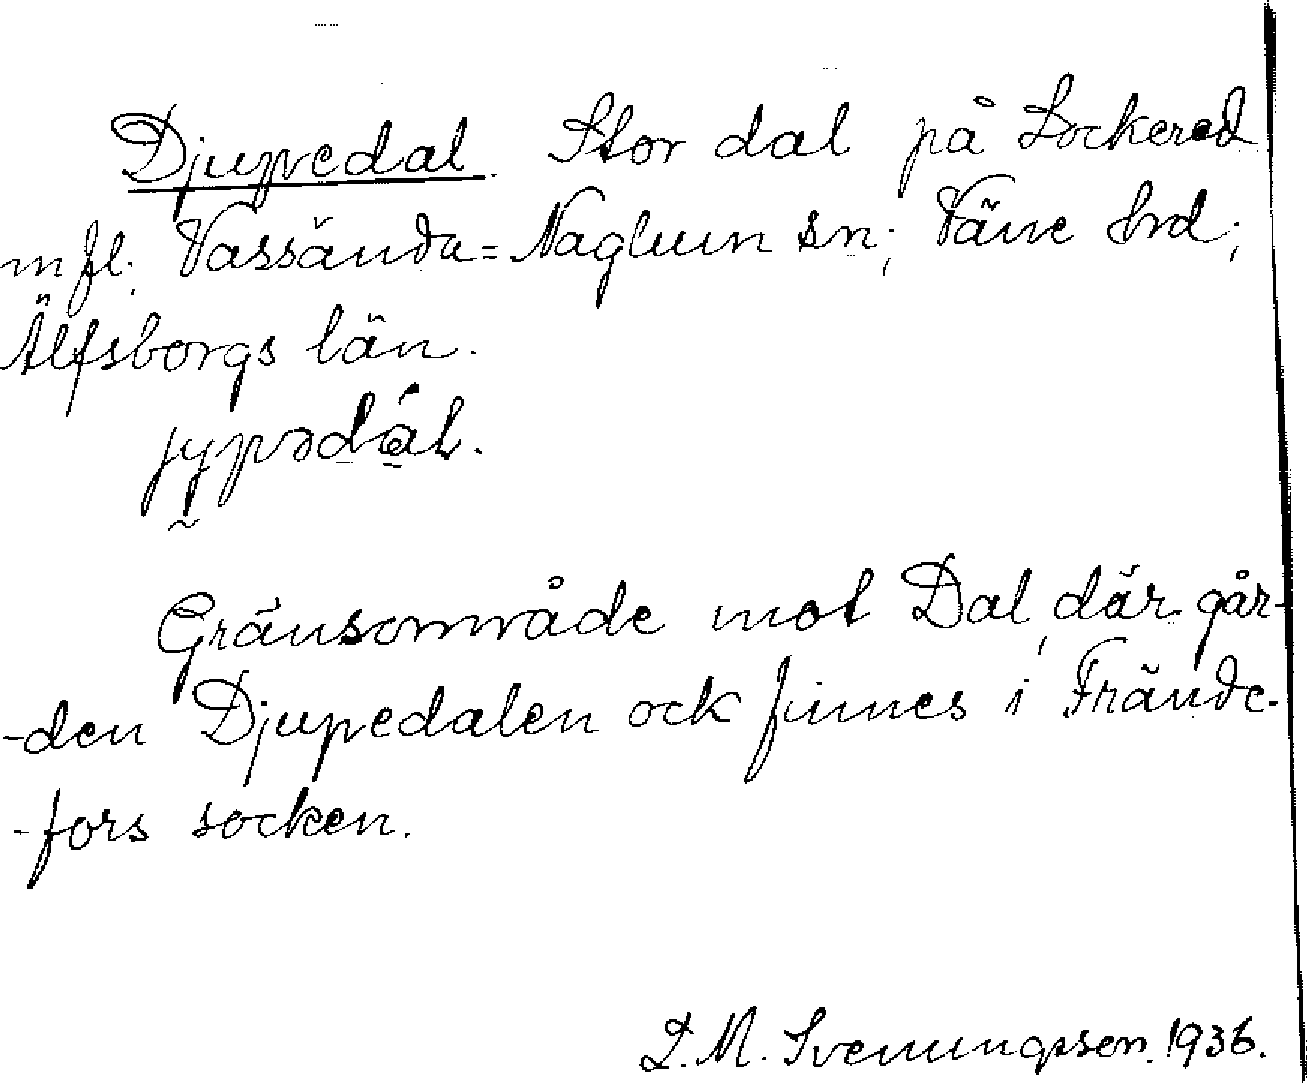 Djupedal. Stor dal på Lockered
m fl. Vassända=Naglum sn; Väne hrd;
Älfsborgs län.
jypədáL.
Gränsområde mot Dal, där går-
-den Djupedalen ock finnes i Frände-
-fors socken.
L. M. Svenungsson. 1936.